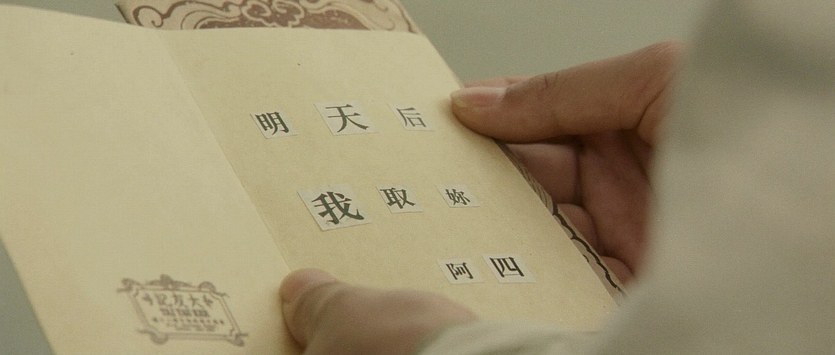 明天后
我取妳
阿四